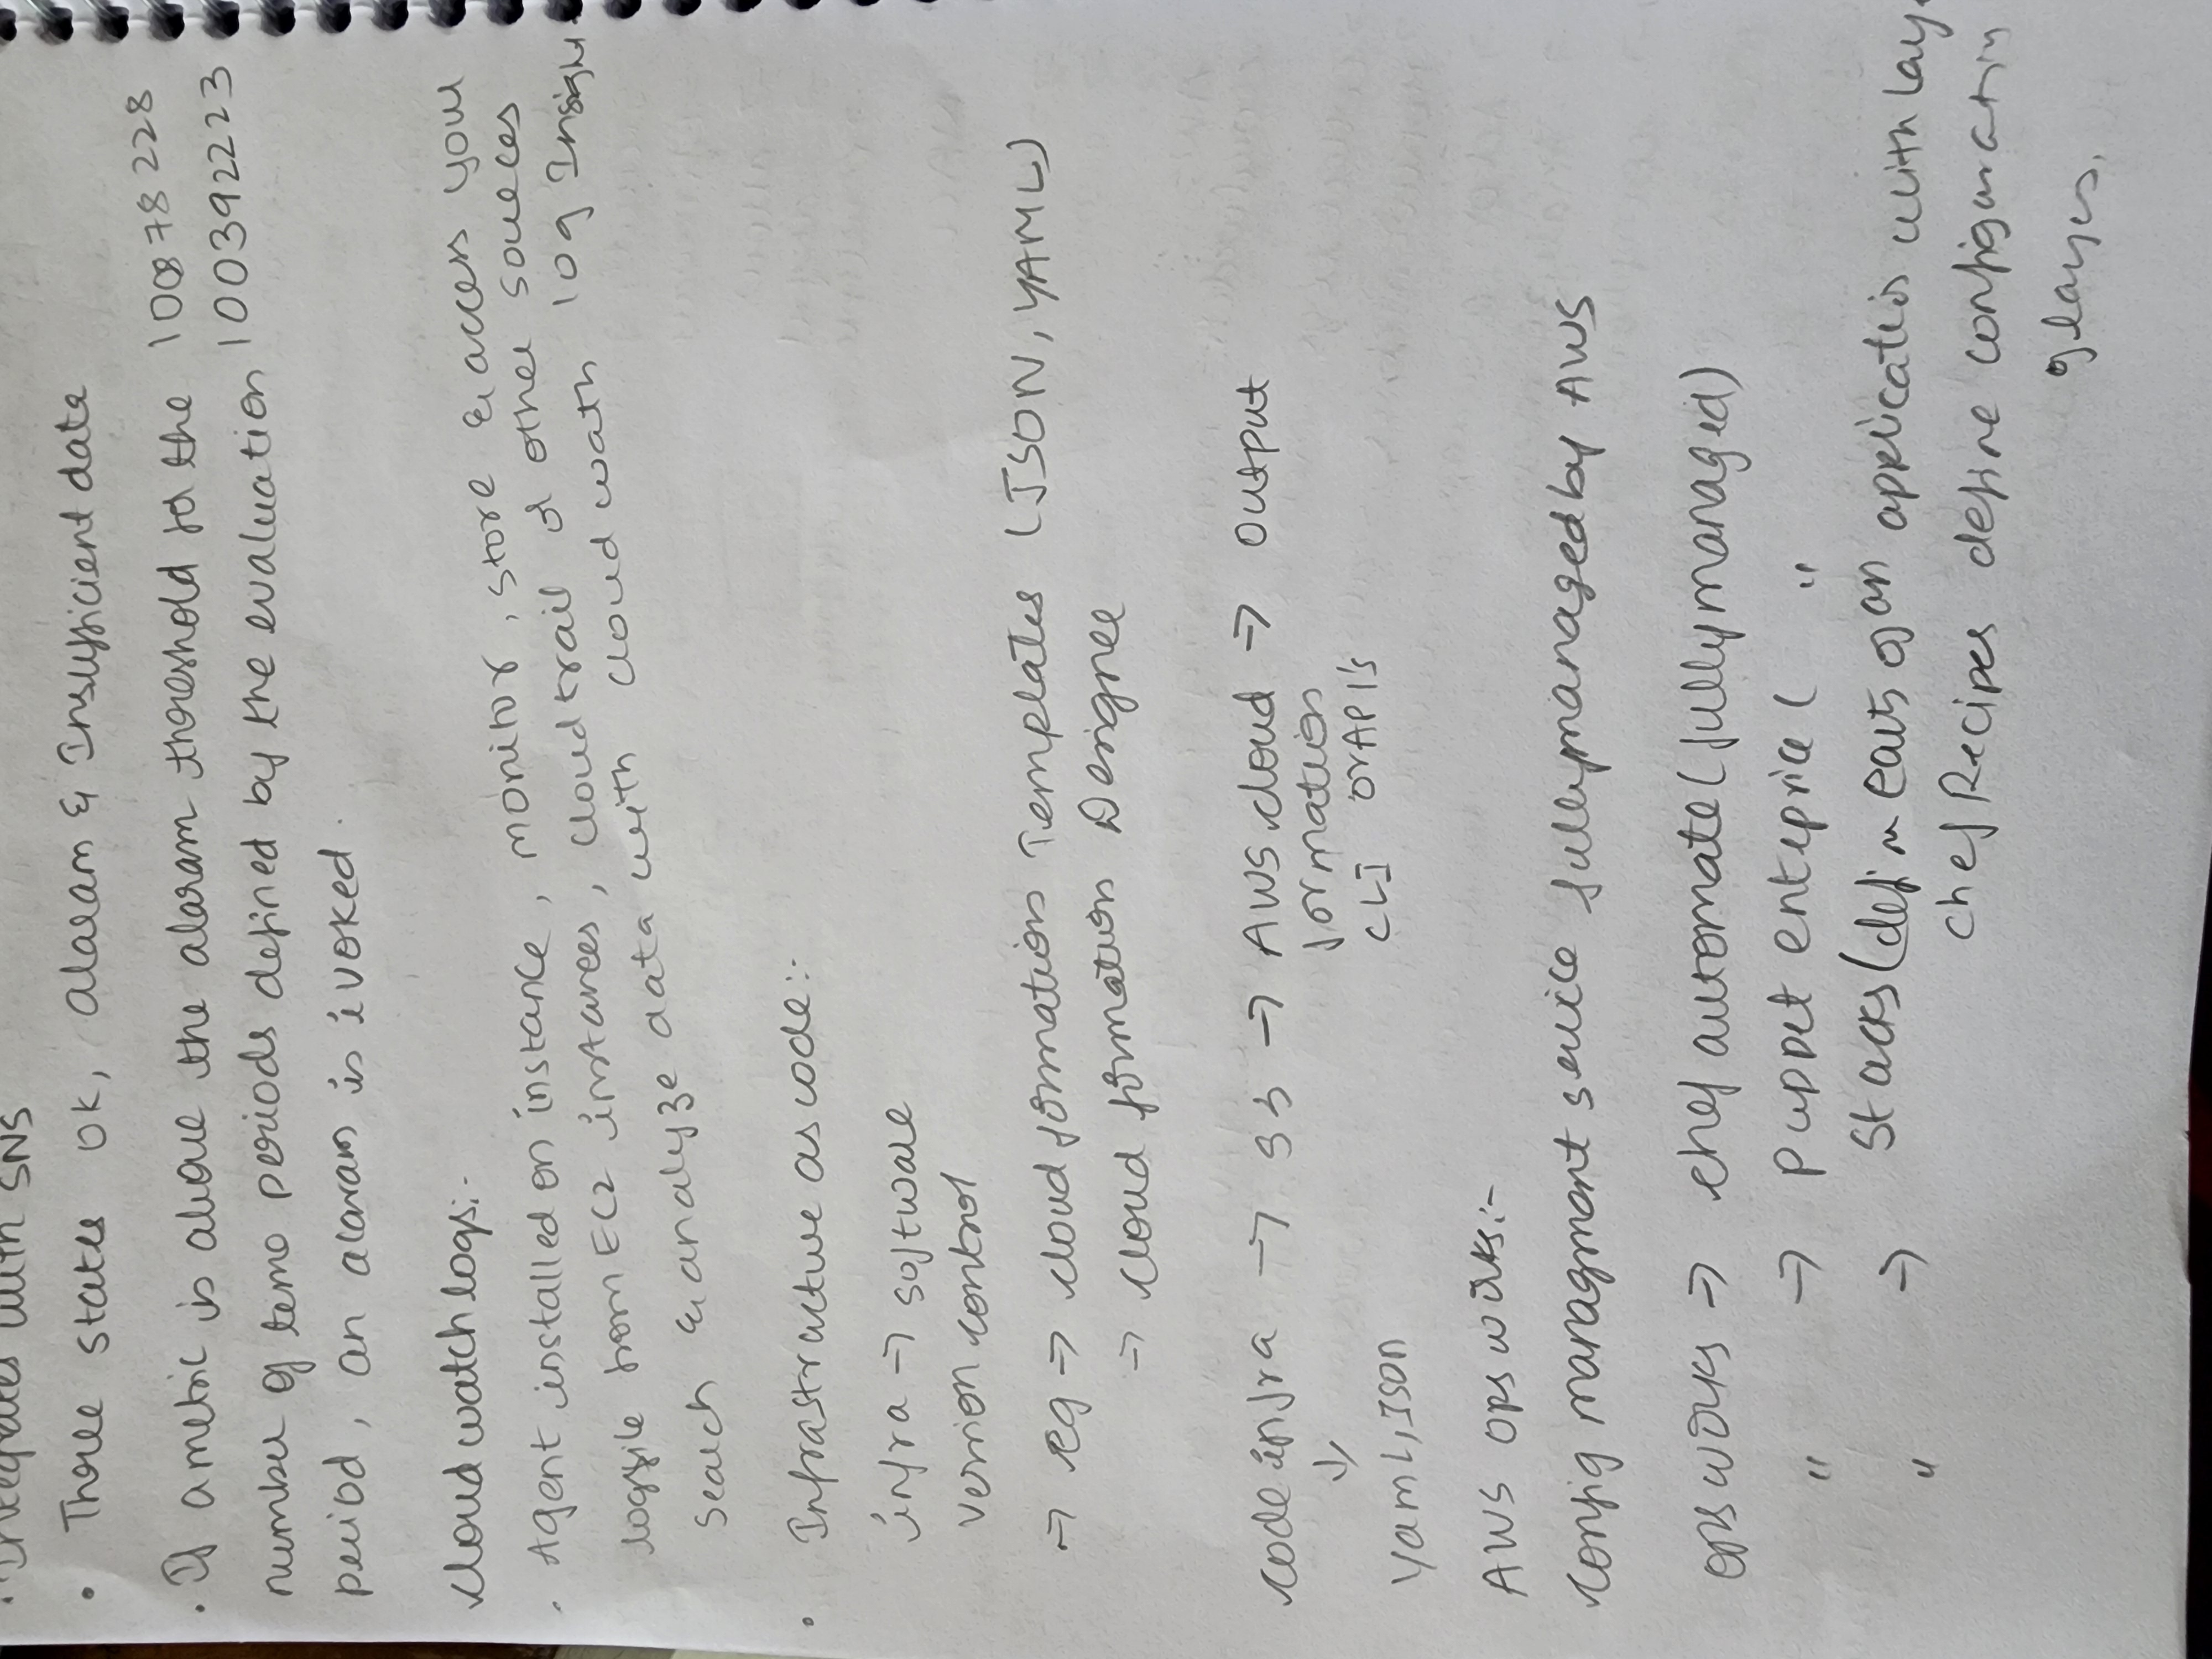 · Integrates with SNS
· Three states OK, Alaram & Insufficient data
· If a metric is above the alaram threshold for the 100878228
number of teme periods defined by the evaluation 100392223
period, an alaram is ivoked.
Cloud watch logs:-
· Agent installed on instance, monitor, store & access your
logfile from EC2 instances, cloudtrail or other soueces
Search & analyze data with cloud wath log Insight
· Infrastructure as code:-
infra → software
Version control
→ eg → cloud formation Templates (JSON, YAML)
→ cloud formation Designee
code infra → S3 → AWS cloud → Output
↓ formation
CLI or API's
Yaml, Json
AWS ops works:-
Config managment service fully managed by AWS
ops works → chef automate (fully managed)
" → puppet enteprice ( "
" → Stacks (defin of an application with lay
chef Recipes define configuration
of layers.